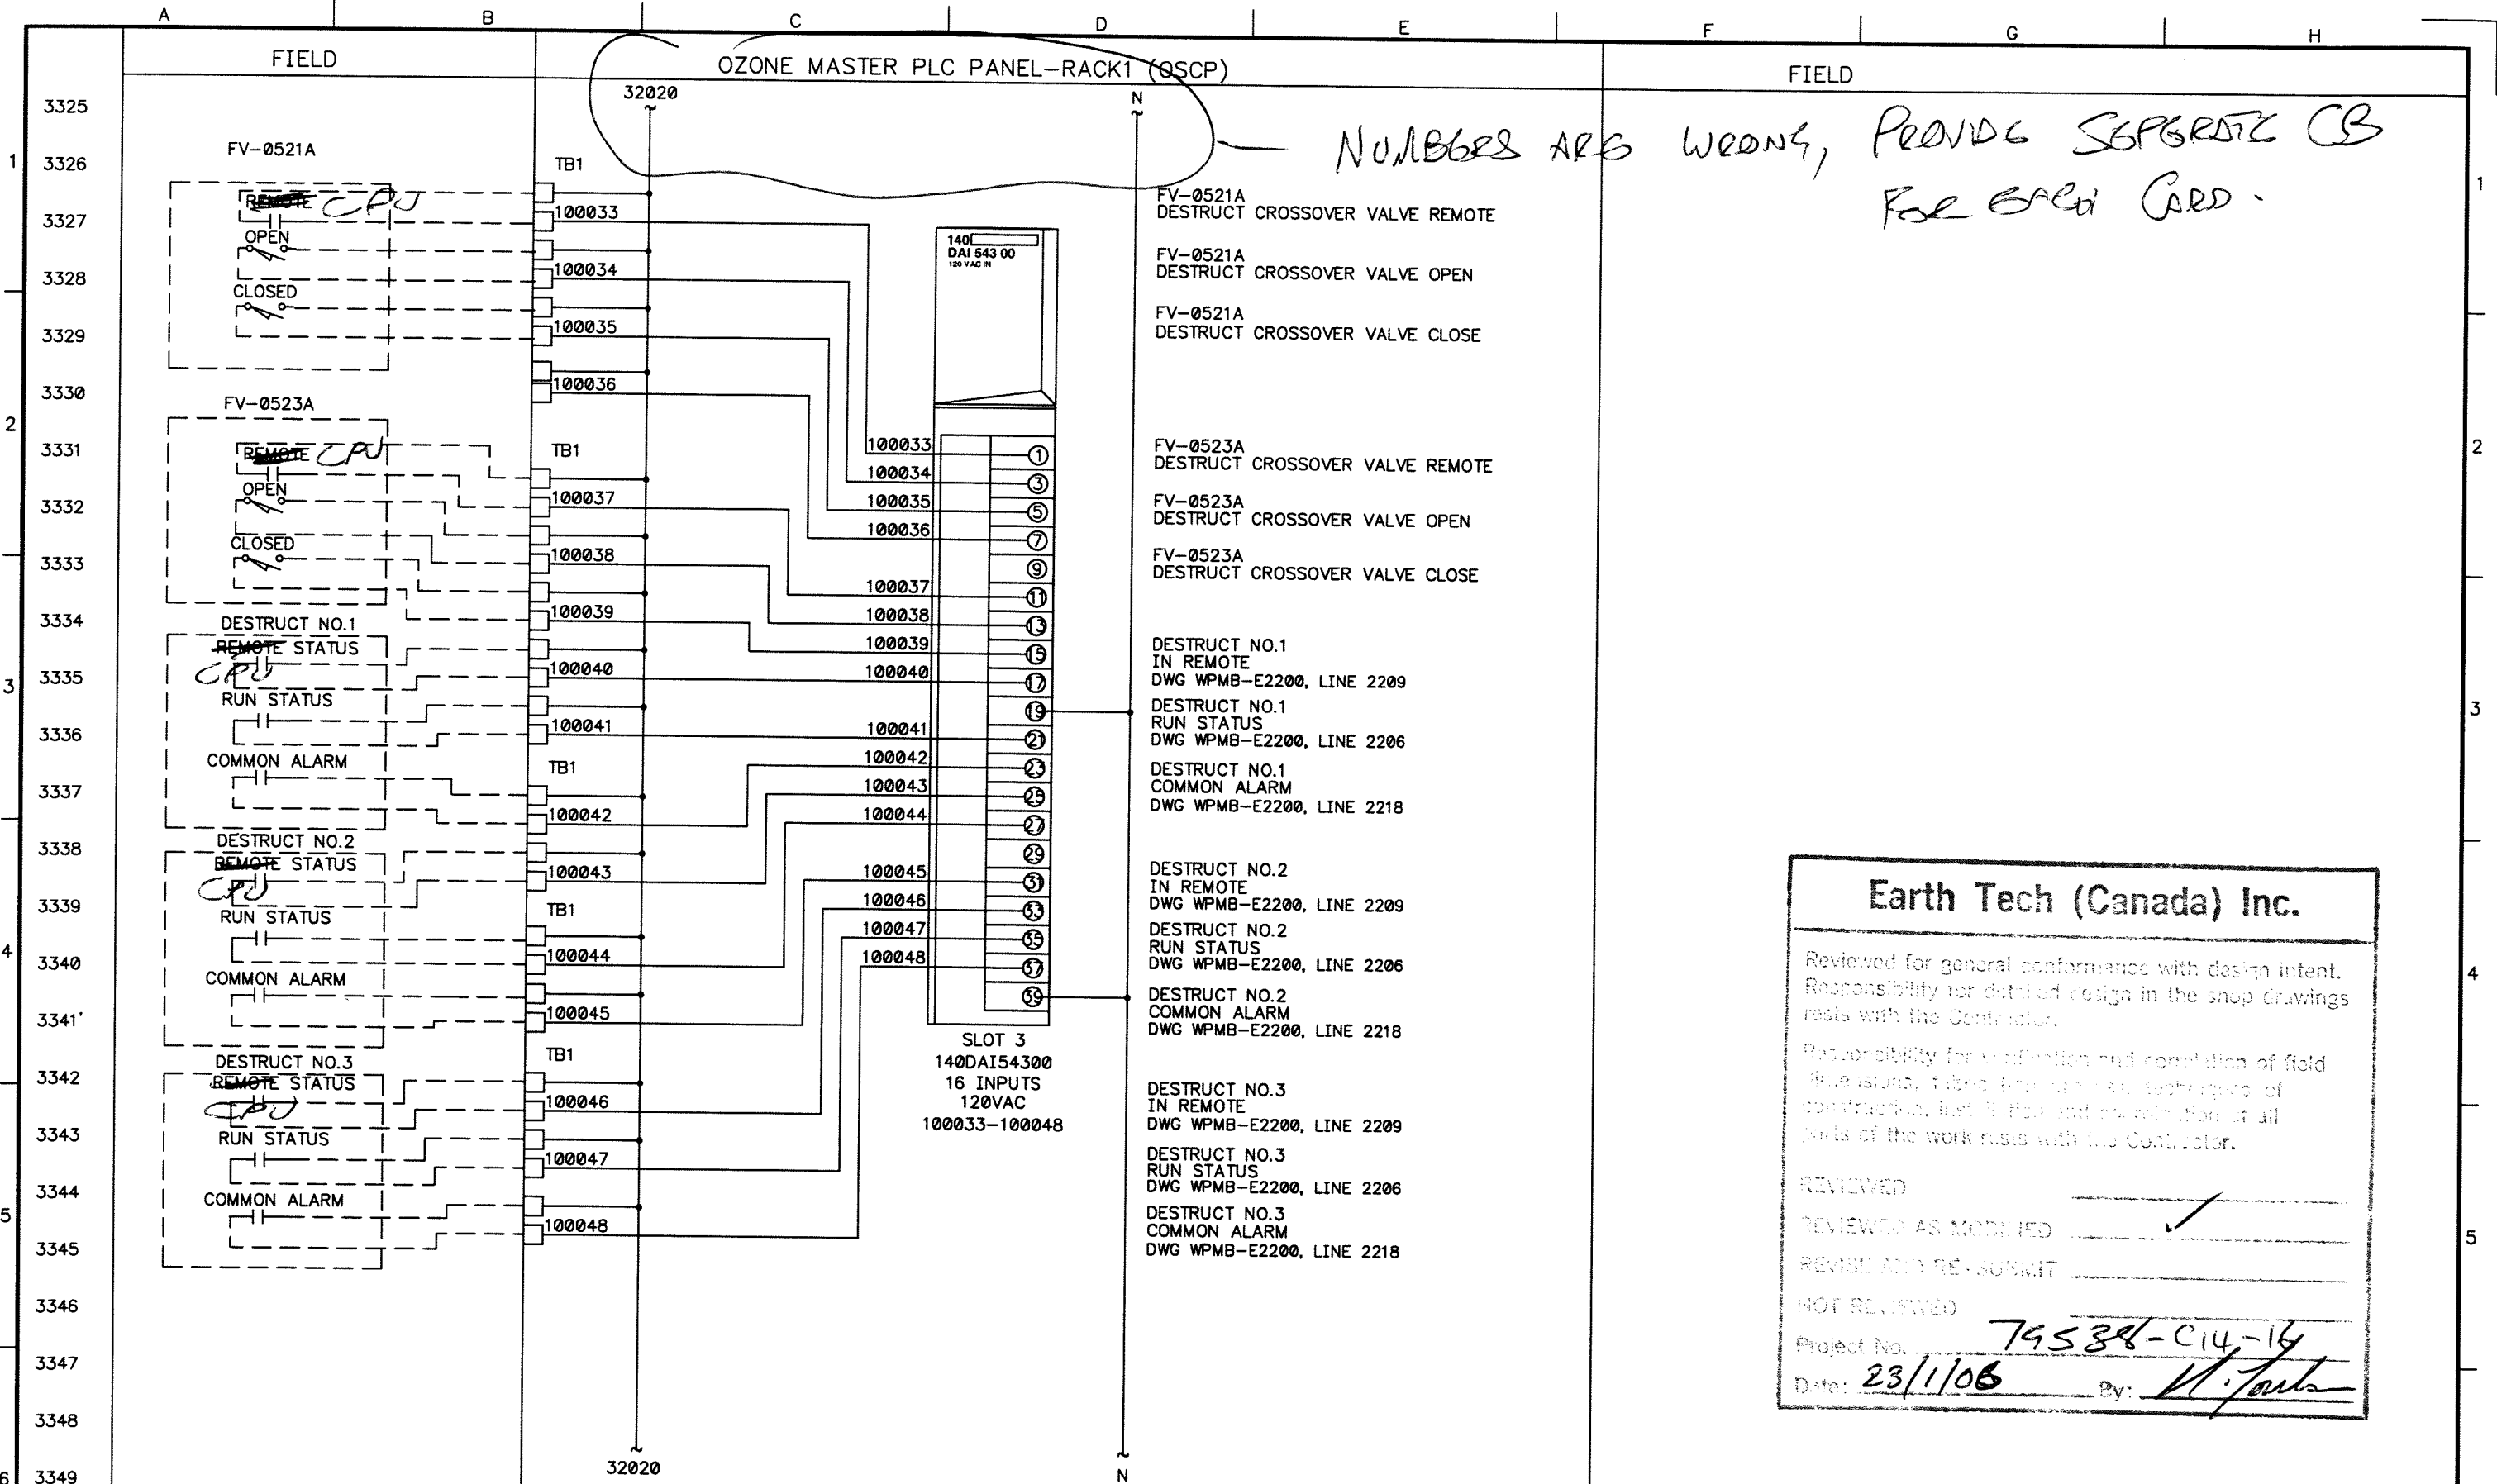 A B C D E F G H
FIELD
OZONE MASTER PLC PANEL-RACK1 (OSCP)
FIELD
32020
N
NUMBERS ARE WRONG, PROVIDE SEPERATE CB
FOR EACH CARD.
3325
3326
3327
3328
3329
3330
3331
3332
3333
3334
3335
3336
3337
3338
3339
3340
3341'
3342
3343
3344
3345
3346
3347
3348
3349
1
2
3
4
5
6
FV-0521A
REMOTE CPU
OPEN
CLOSED
FV-0523A
REMOTE CPU
OPEN
CLOSED
DESTRUCT NO.1
REMOTE STATUS
CPU
RUN STATUS
COMMON ALARM
DESTRUCT NO.2
REMOTE STATUS
CPU
RUN STATUS
COMMON ALARM
DESTRUCT NO.3
REMOTE STATUS
CPU
RUN STATUS
COMMON ALARM
TB1
100033
100034
100035
100036
TB1
100037
100038
100039
100040
100041
TB1
100042
100043
TB1
100044
100045
TB1
100046
100047
100048
32020
140
DAI 543 00
120 VAC IN
100033 1
100034 3
100035 5
100036 7
9
100037 11
100038 13
100039 15
100040 17
19
100041 21
100042 23
100043 25
100044 27
29
100045 31
100046 33
100047 35
100048 37
39
SLOT 3
140DAI54300
16 INPUTS
120VAC
100033-100048
N
FV-0521A
DESTRUCT CROSSOVER VALVE REMOTE
FV-0521A
DESTRUCT CROSSOVER VALVE OPEN
FV-0521A
DESTRUCT CROSSOVER VALVE CLOSE
FV-0523A
DESTRUCT CROSSOVER VALVE REMOTE
FV-0523A
DESTRUCT CROSSOVER VALVE OPEN
FV-0523A
DESTRUCT CROSSOVER VALVE CLOSE
DESTRUCT NO.1
IN REMOTE
DWG WPMB-E2200, LINE 2209
DESTRUCT NO.1
RUN STATUS
DWG WPMB-E2200, LINE 2206
DESTRUCT NO.1
COMMON ALARM
DWG WPMB-E2200, LINE 2218
DESTRUCT NO.2
IN REMOTE
DWG WPMB-E2200, LINE 2209
DESTRUCT NO.2
RUN STATUS
DWG WPMB-E2200, LINE 2206
DESTRUCT NO.2
COMMON ALARM
DWG WPMB-E2200, LINE 2218
DESTRUCT NO.3
IN REMOTE
DWG WPMB-E2200, LINE 2209
DESTRUCT NO.3
RUN STATUS
DWG WPMB-E2200, LINE 2206
DESTRUCT NO.3
COMMON ALARM
DWG WPMB-E2200, LINE 2218
1
2
3
4
5
Earth Tech (Canada) Inc.
Reviewed for general conformance with design intent.
Responsibility for detailed design in the shop drawings
rests with the Contractor.
Responsibility for verification and correlation of field
dimensions, techniques of
construction, installation of all
parts of the work rests with the Contractor.
REVIEWED
REVIEWED AS MODIFIED
REVISE AND RE-SUBMIT
NOT REVIEWED
Project No. 79538-C14-16
Date: 23/1/06 By: